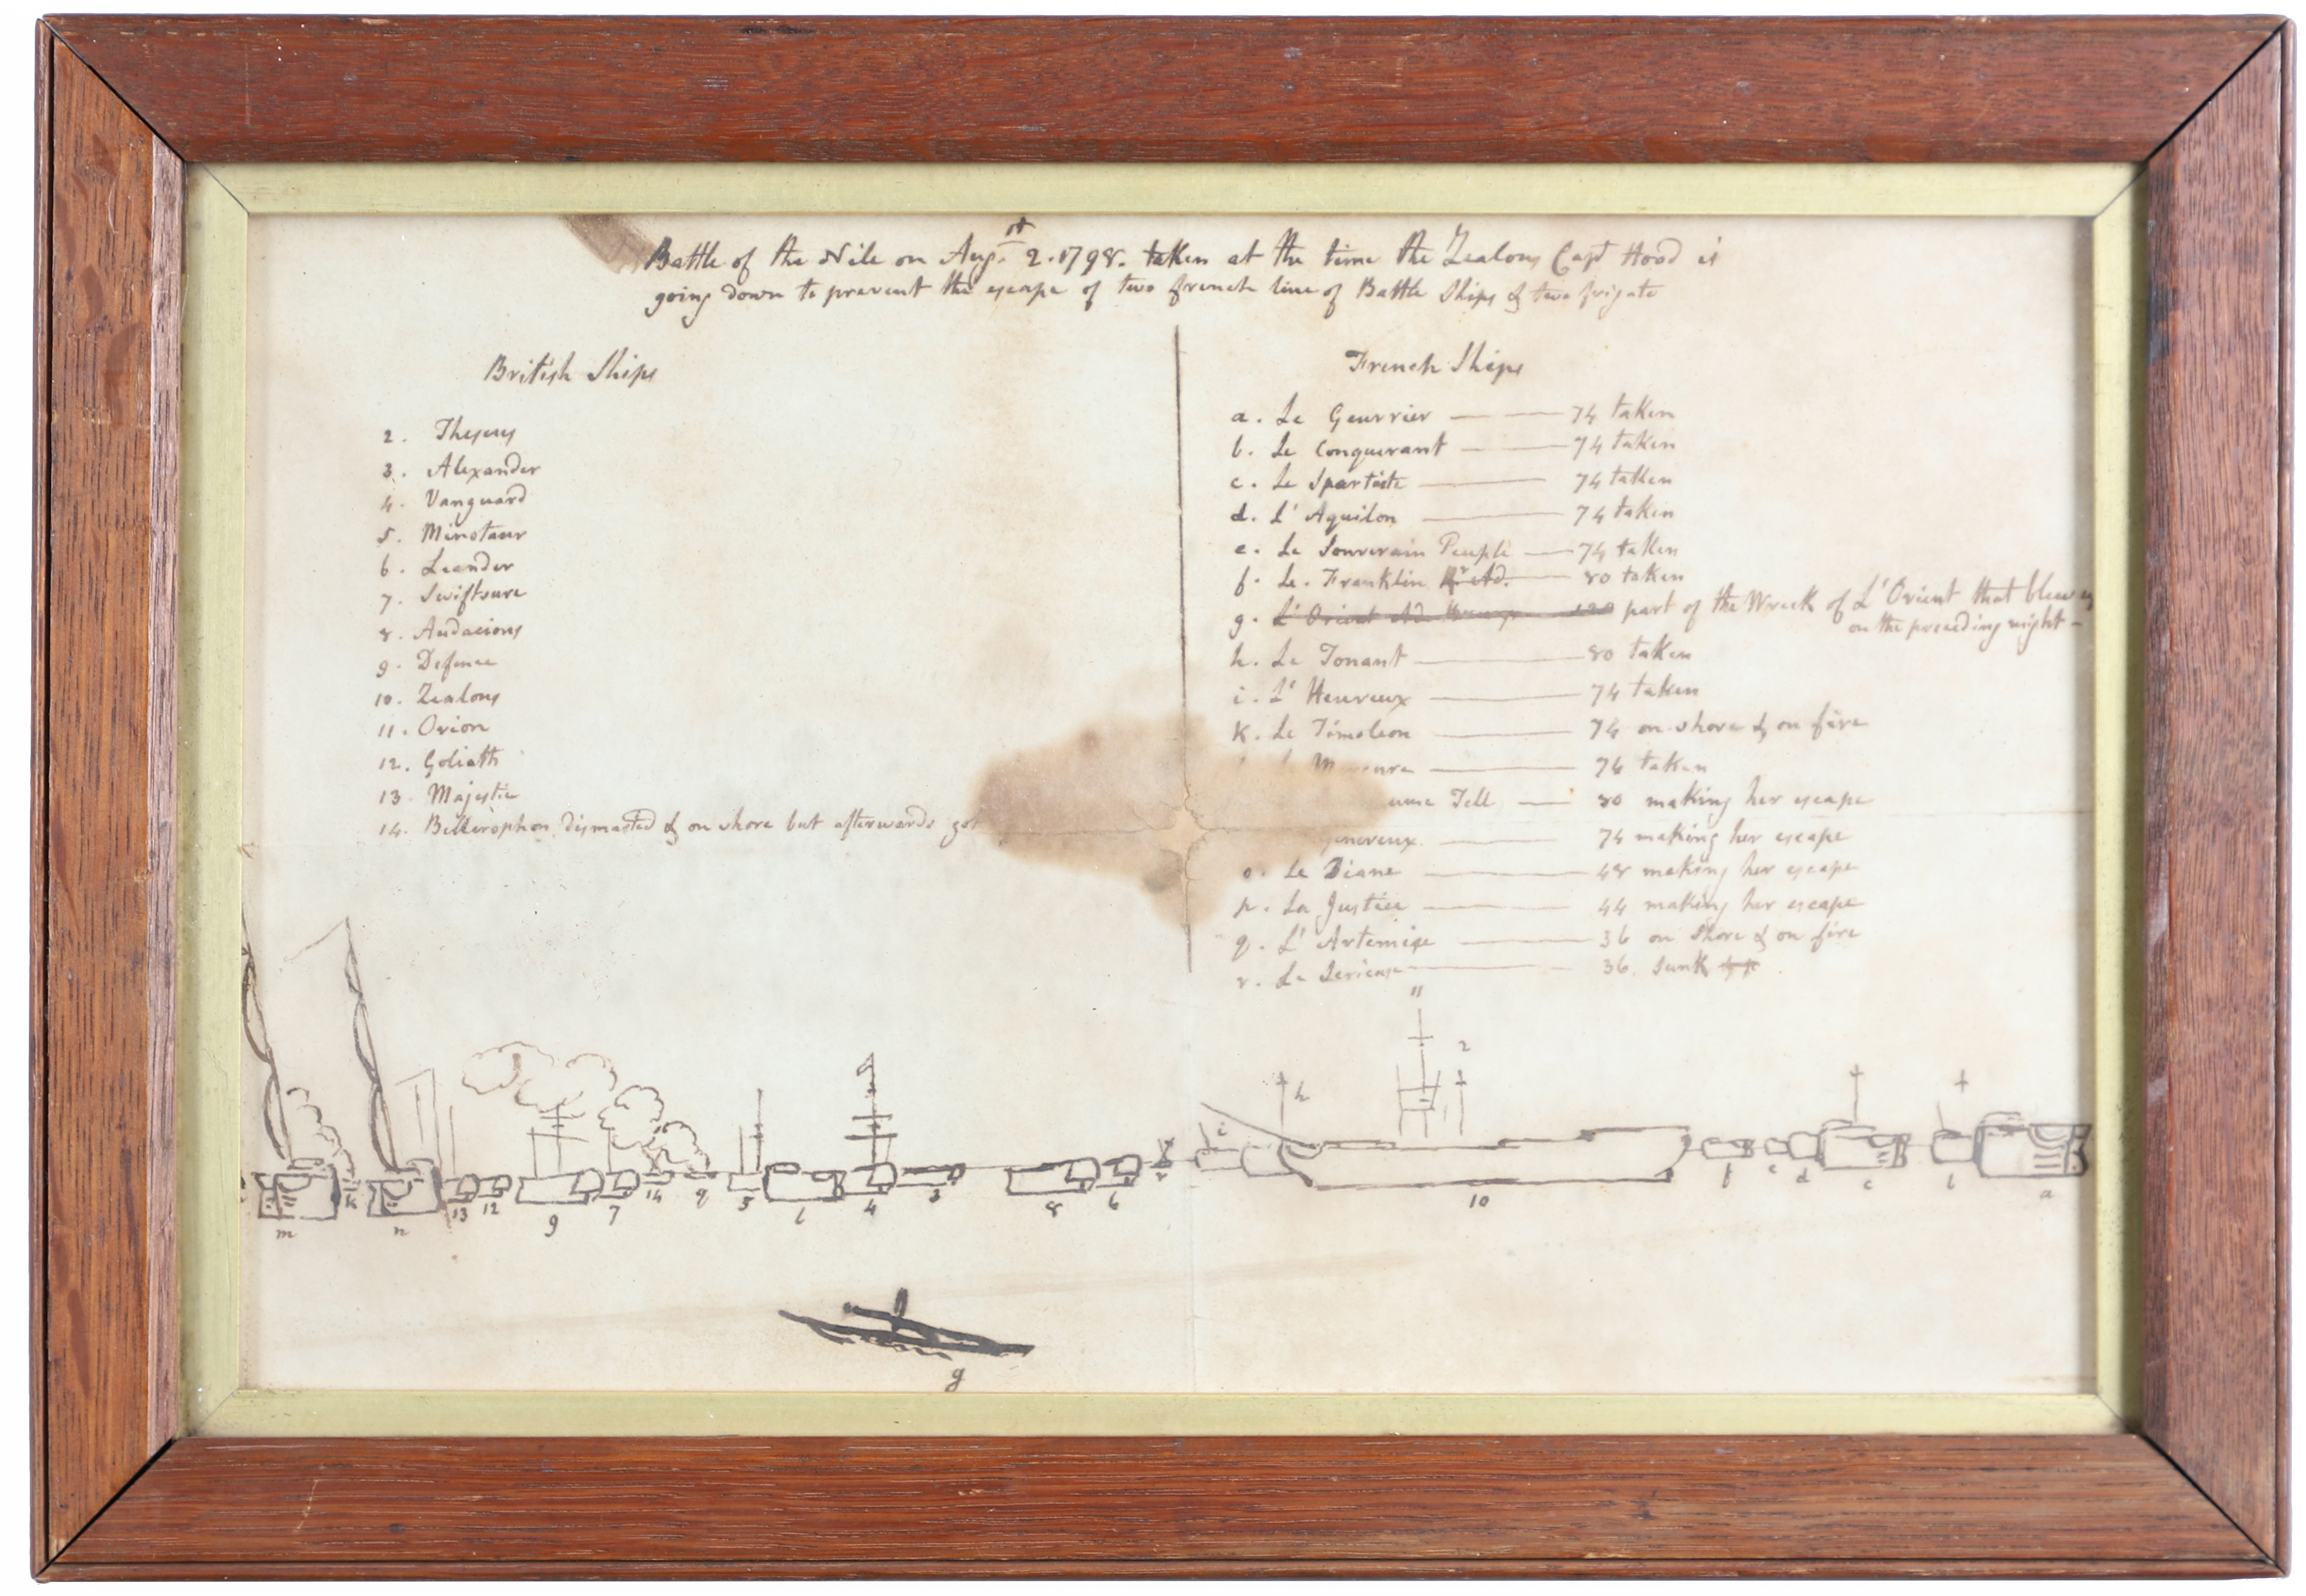 Battle of the Nile on Augst 2. 1798. taken at the time the Zealous Capt Hood is
going down to prevent the escape of two french line of Battle Ships & two frigate
British Ships
2. Theseus
3. Alexander
4. Vanguard
5. Minotaur
6. Leander
7. Swiftsure
8. Audacious
9. Defence
10. Zealous
11. Orion
12. Goliath
13. Majestic
14. Bellerophon dismasted & on shore but afterwards got
French Ships
a. Le Geurrier 74 taken
b. Le Conquerant 74 taken
c. Le Spartiate 74 taken
d. L' Aquilon 74 taken
e. Le Souverain Peuple 74 taken
f. Le. Franklin Rr Ad. 80 taken
g. L' Orient Ad. 120 part of the Wreck of L' Orient that blew
on the preceeding night
h. Le Tonant 80 taken
i. L' Heureux 74 taken
k. Le Timoleon 74 on shore & on fire
74 taken
Tell 80 making her escape
genereux 74 making her escape
o. La Diane 48 making her escape
p. La Justice 44 making her escape
q. L' Artemise 36 on shore & on fire
r. La Serieuse 36. sunk
11
2
h
i
m k n 13 12 9 7 14 q 5 l 4 3 8 6 r 10 f e d c b a
g